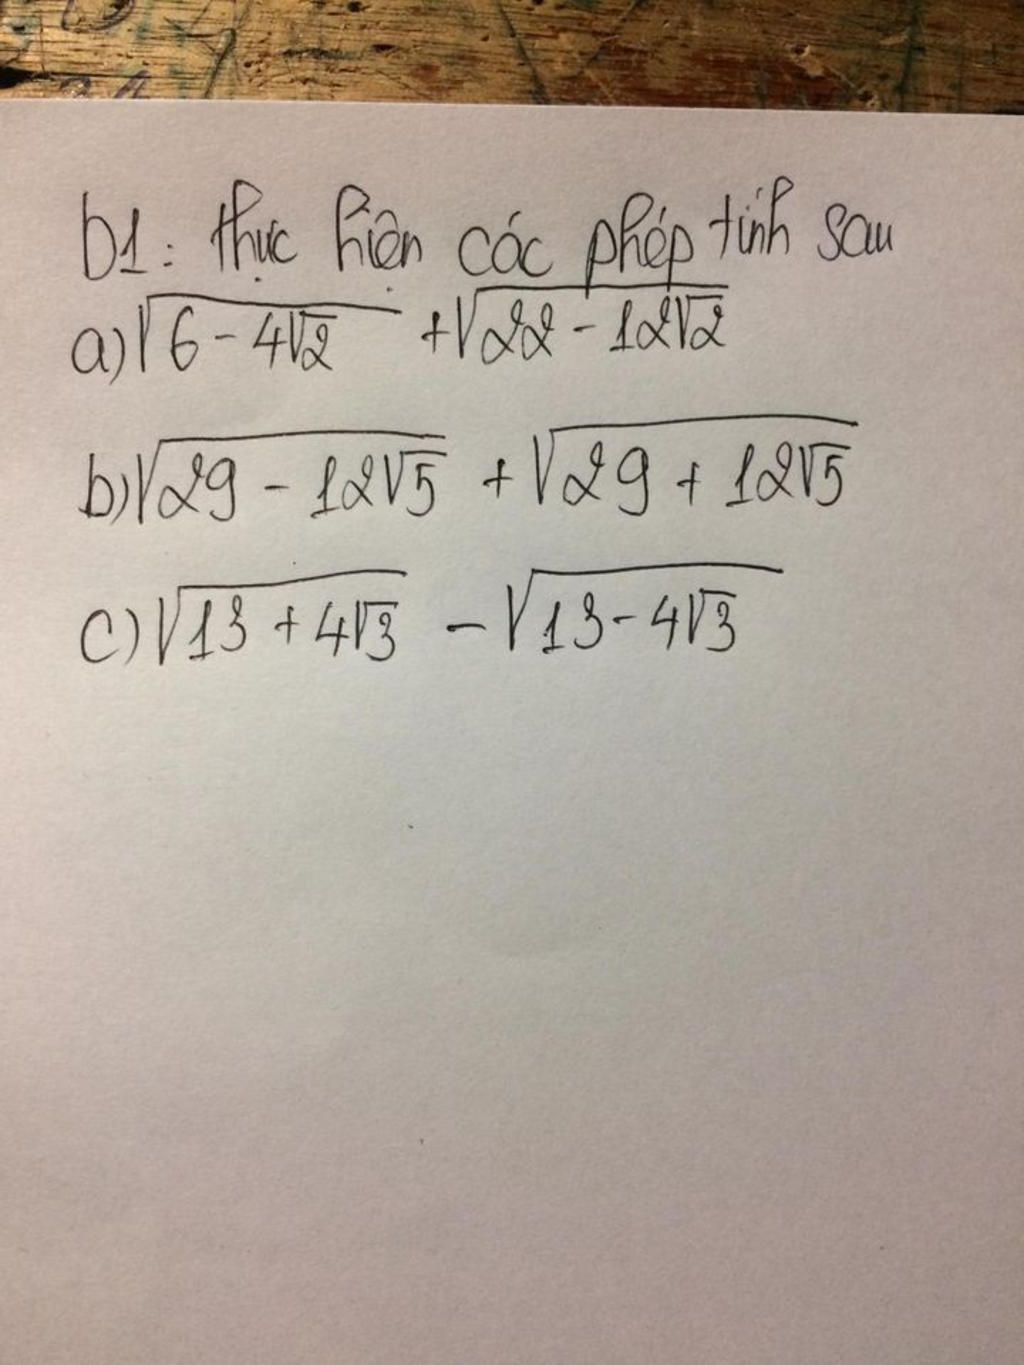 b1: thực hiện các phép tính sau
a) √(6 - 4√2) + √(22 - 12√2)
b) √(29 - 12√5) + √(29 + 12√5)
c) √(13 + 4√3) - √(13 - 4√3)